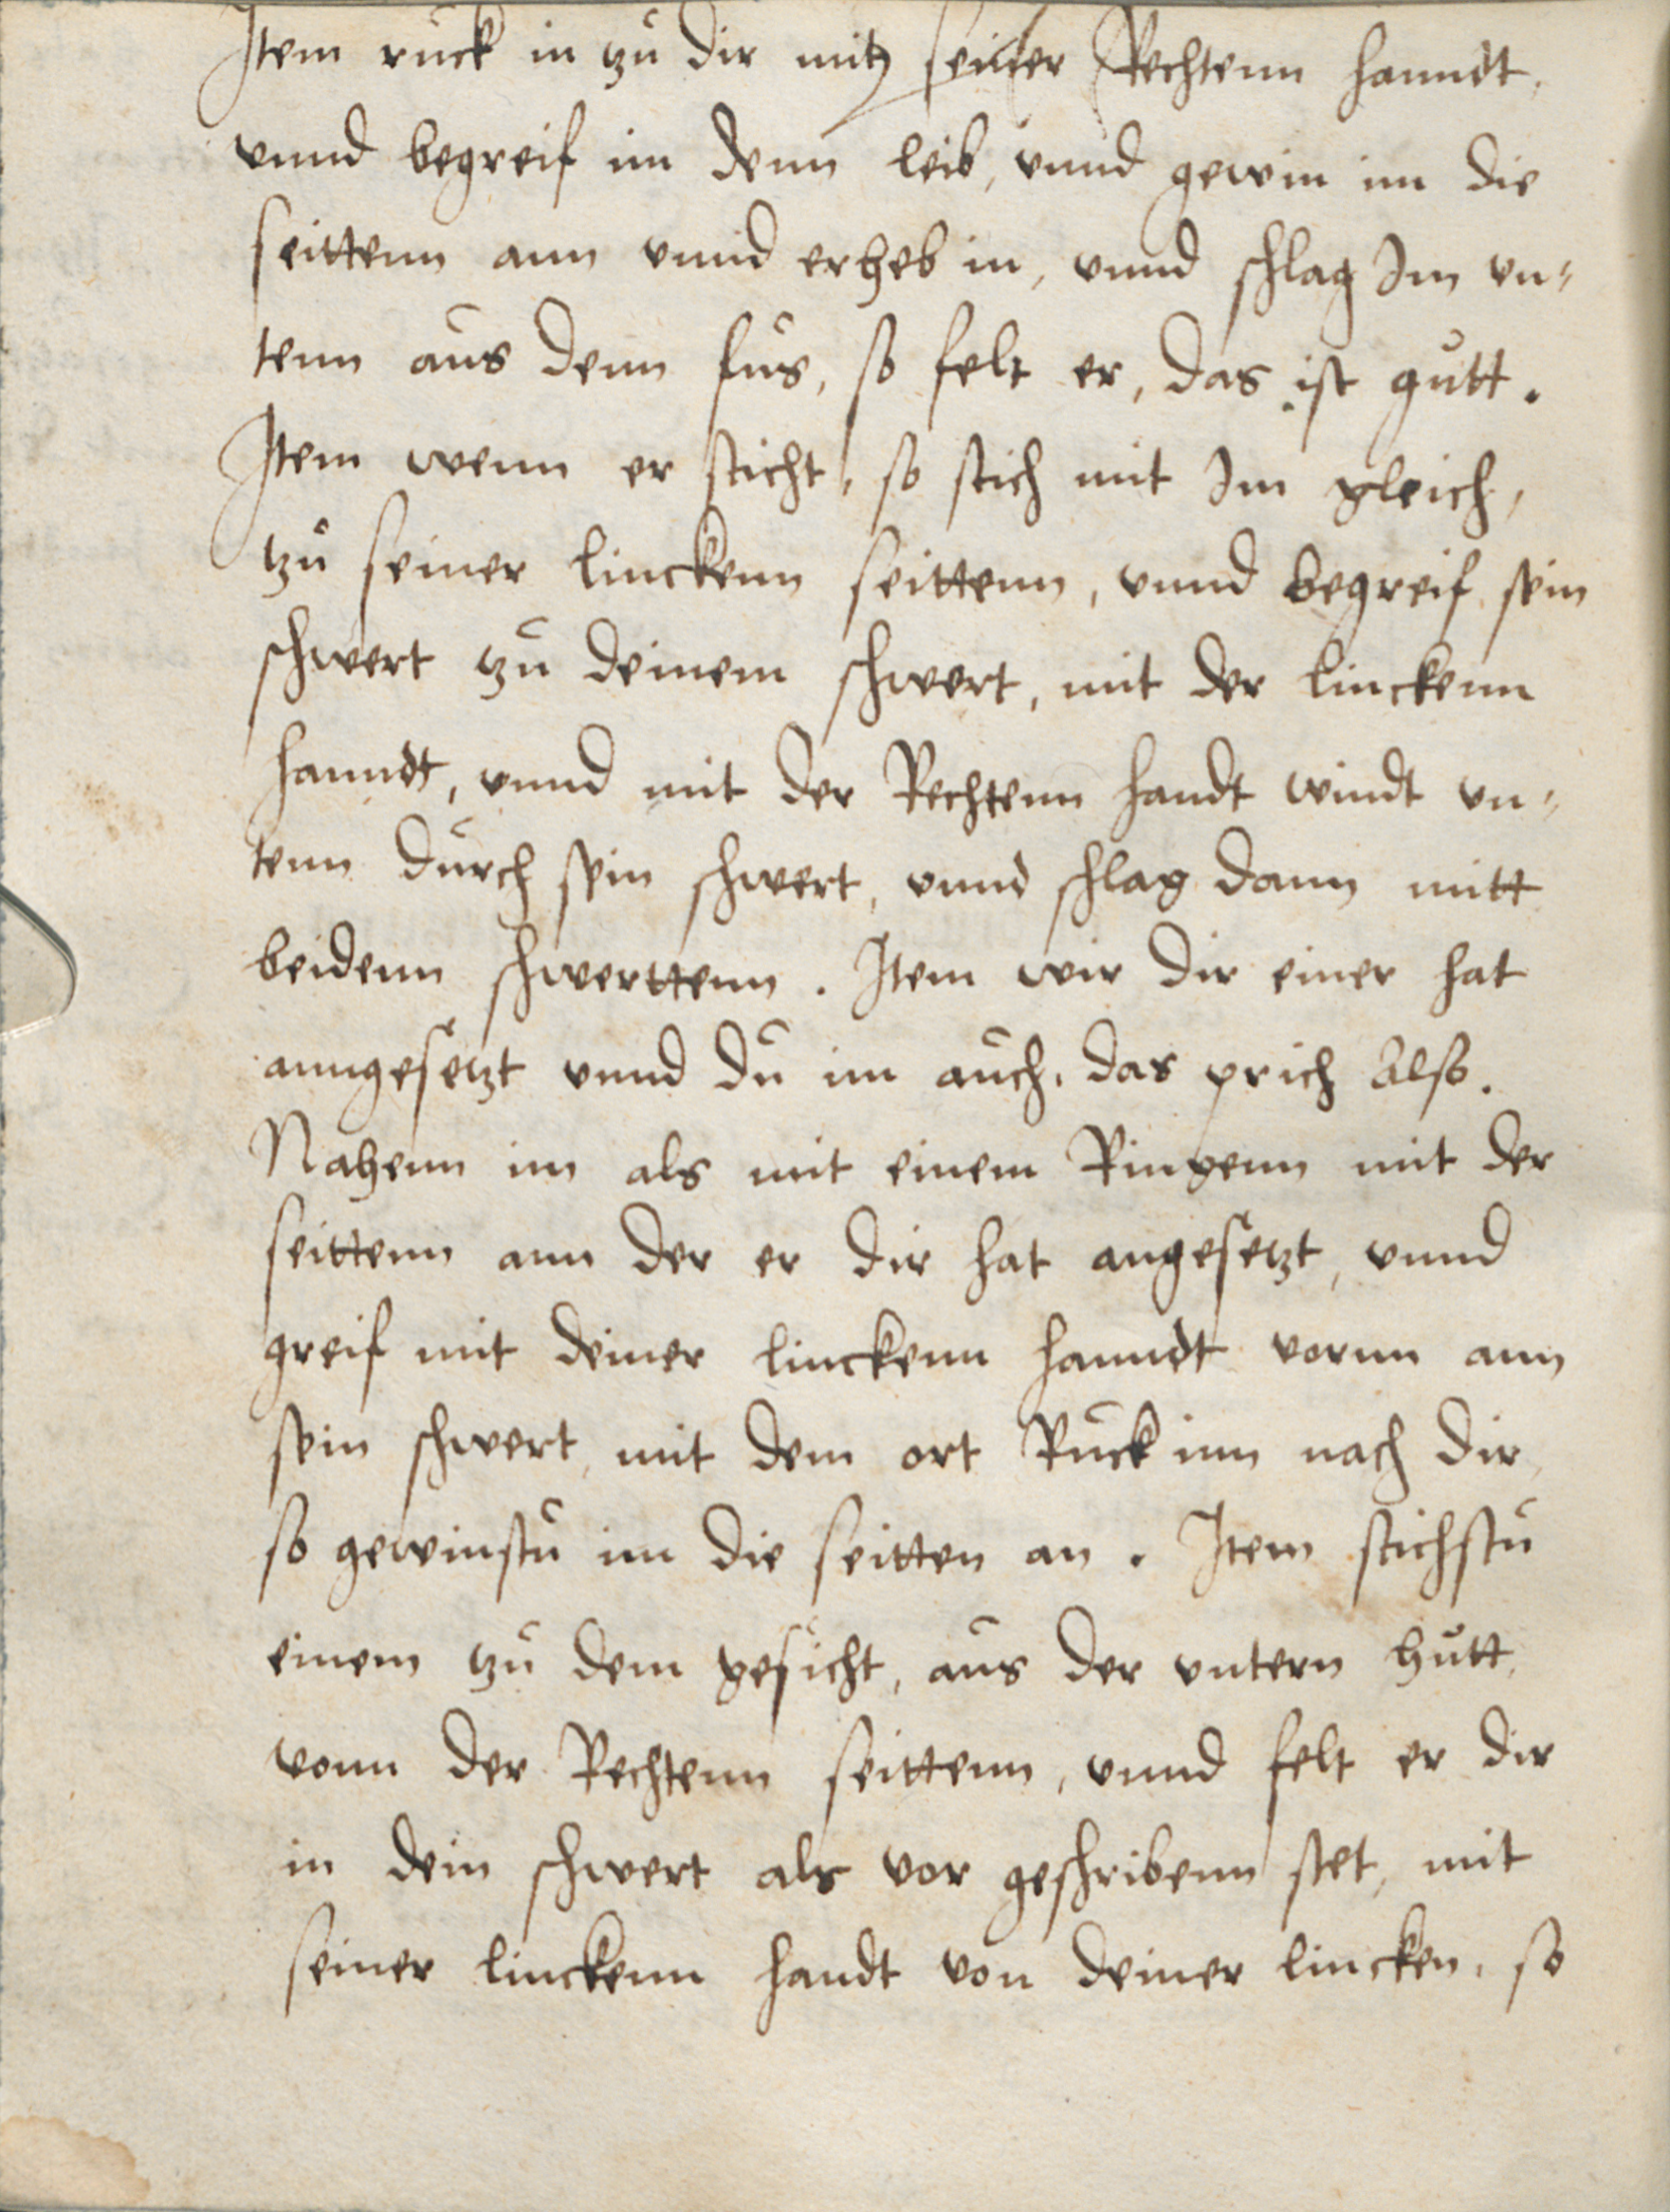 Item ruck in tzu dir mit seiner Rechtenn hanndt,
vnnd begreif im denn leib, vnnd gewin im die
seittenn ann vnnd erheb in, vnnd schlag Im vn¬
tenn aus denn fus, so felt er, das ist gutt.
Item wenn er sticht, so stich mit Im gleich,
tzu seiner linckenn seittenn, vnnd begreif sein
schwert tzu deinem schwert, mit der linckenn
hanndt, vnnd mit der Rechtenn handt windt vn¬
tenn durch sein schwert, vnnd schlag dann mitt
beidenn schwerttenn. Item wir dir einer hat
anngesetzt vnnd du im auch, das prich Also.
Nahenn im als mit einem Ringenn mit der
seittenn ann der er dir hat angesetzt, vnnd
greif mit deiner linckenn hanndt vornn ann
sein schwert, mit dem ort Ruck inn nach dir,
so gewinstu im die seitten an. Item stichstu
einem tzu dem gesicht, aus der vntern hutt,
vonn der Rechtenn seittenn, vnnd felt er dir
in dein schwert als vor geschribenn stet, mit
seiner linckenn handt von deiner lincken, so